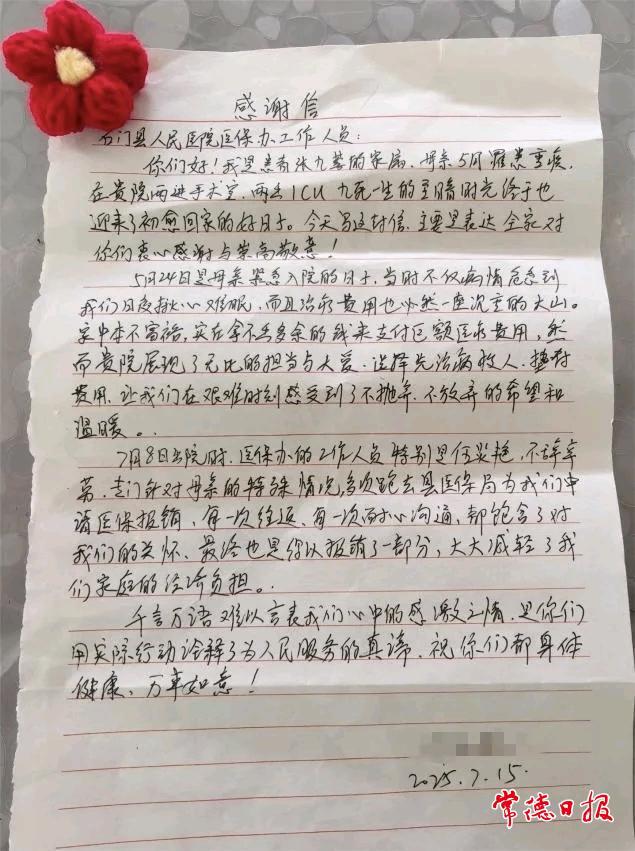 感谢信
石门县人民医院医保办工作人员：
你们好！我是患者张九菊的家属，母亲5月罹患重疾，
在贵院两进手术室，两去ICU九死一生的至暗时光终于也
迎来了初愈回家的好日子。今天写这封信，主要是表达全家对
你们衷心感谢与崇高敬意！
5月24日是母亲紧急入院的日子，当时不仅病情危急到
我们日夜揪心难眠，而且治疗费用也必然一座沉重的大山。
家中本不富裕，实在拿不出多余的钱来支付巨额医疗费用，然
而贵院展现了无比的担当与大爱，选择先治病救人，垫付
费用，让我们在艰难时刻感受到了不抛弃，不放弃的希望和
温暖。
7月8日出院时，医保办的工作人员特别是伍艳，不辞辛
劳，专门针对母亲的特殊情况多次跑去县医保局为我们申
请医保报销，每一次往返，每一次耐心沟通，都饱含了对
我们的关怀。最终也是得以报销了一部分，大大减轻了我
们家庭的经济负担。
千言万语难以言表我们心中的感激之情，是你们
用实际行动诠释了为人民服务的真谛，祝你们都身体
健康，万事如意！
2025.7.15.
常德日报